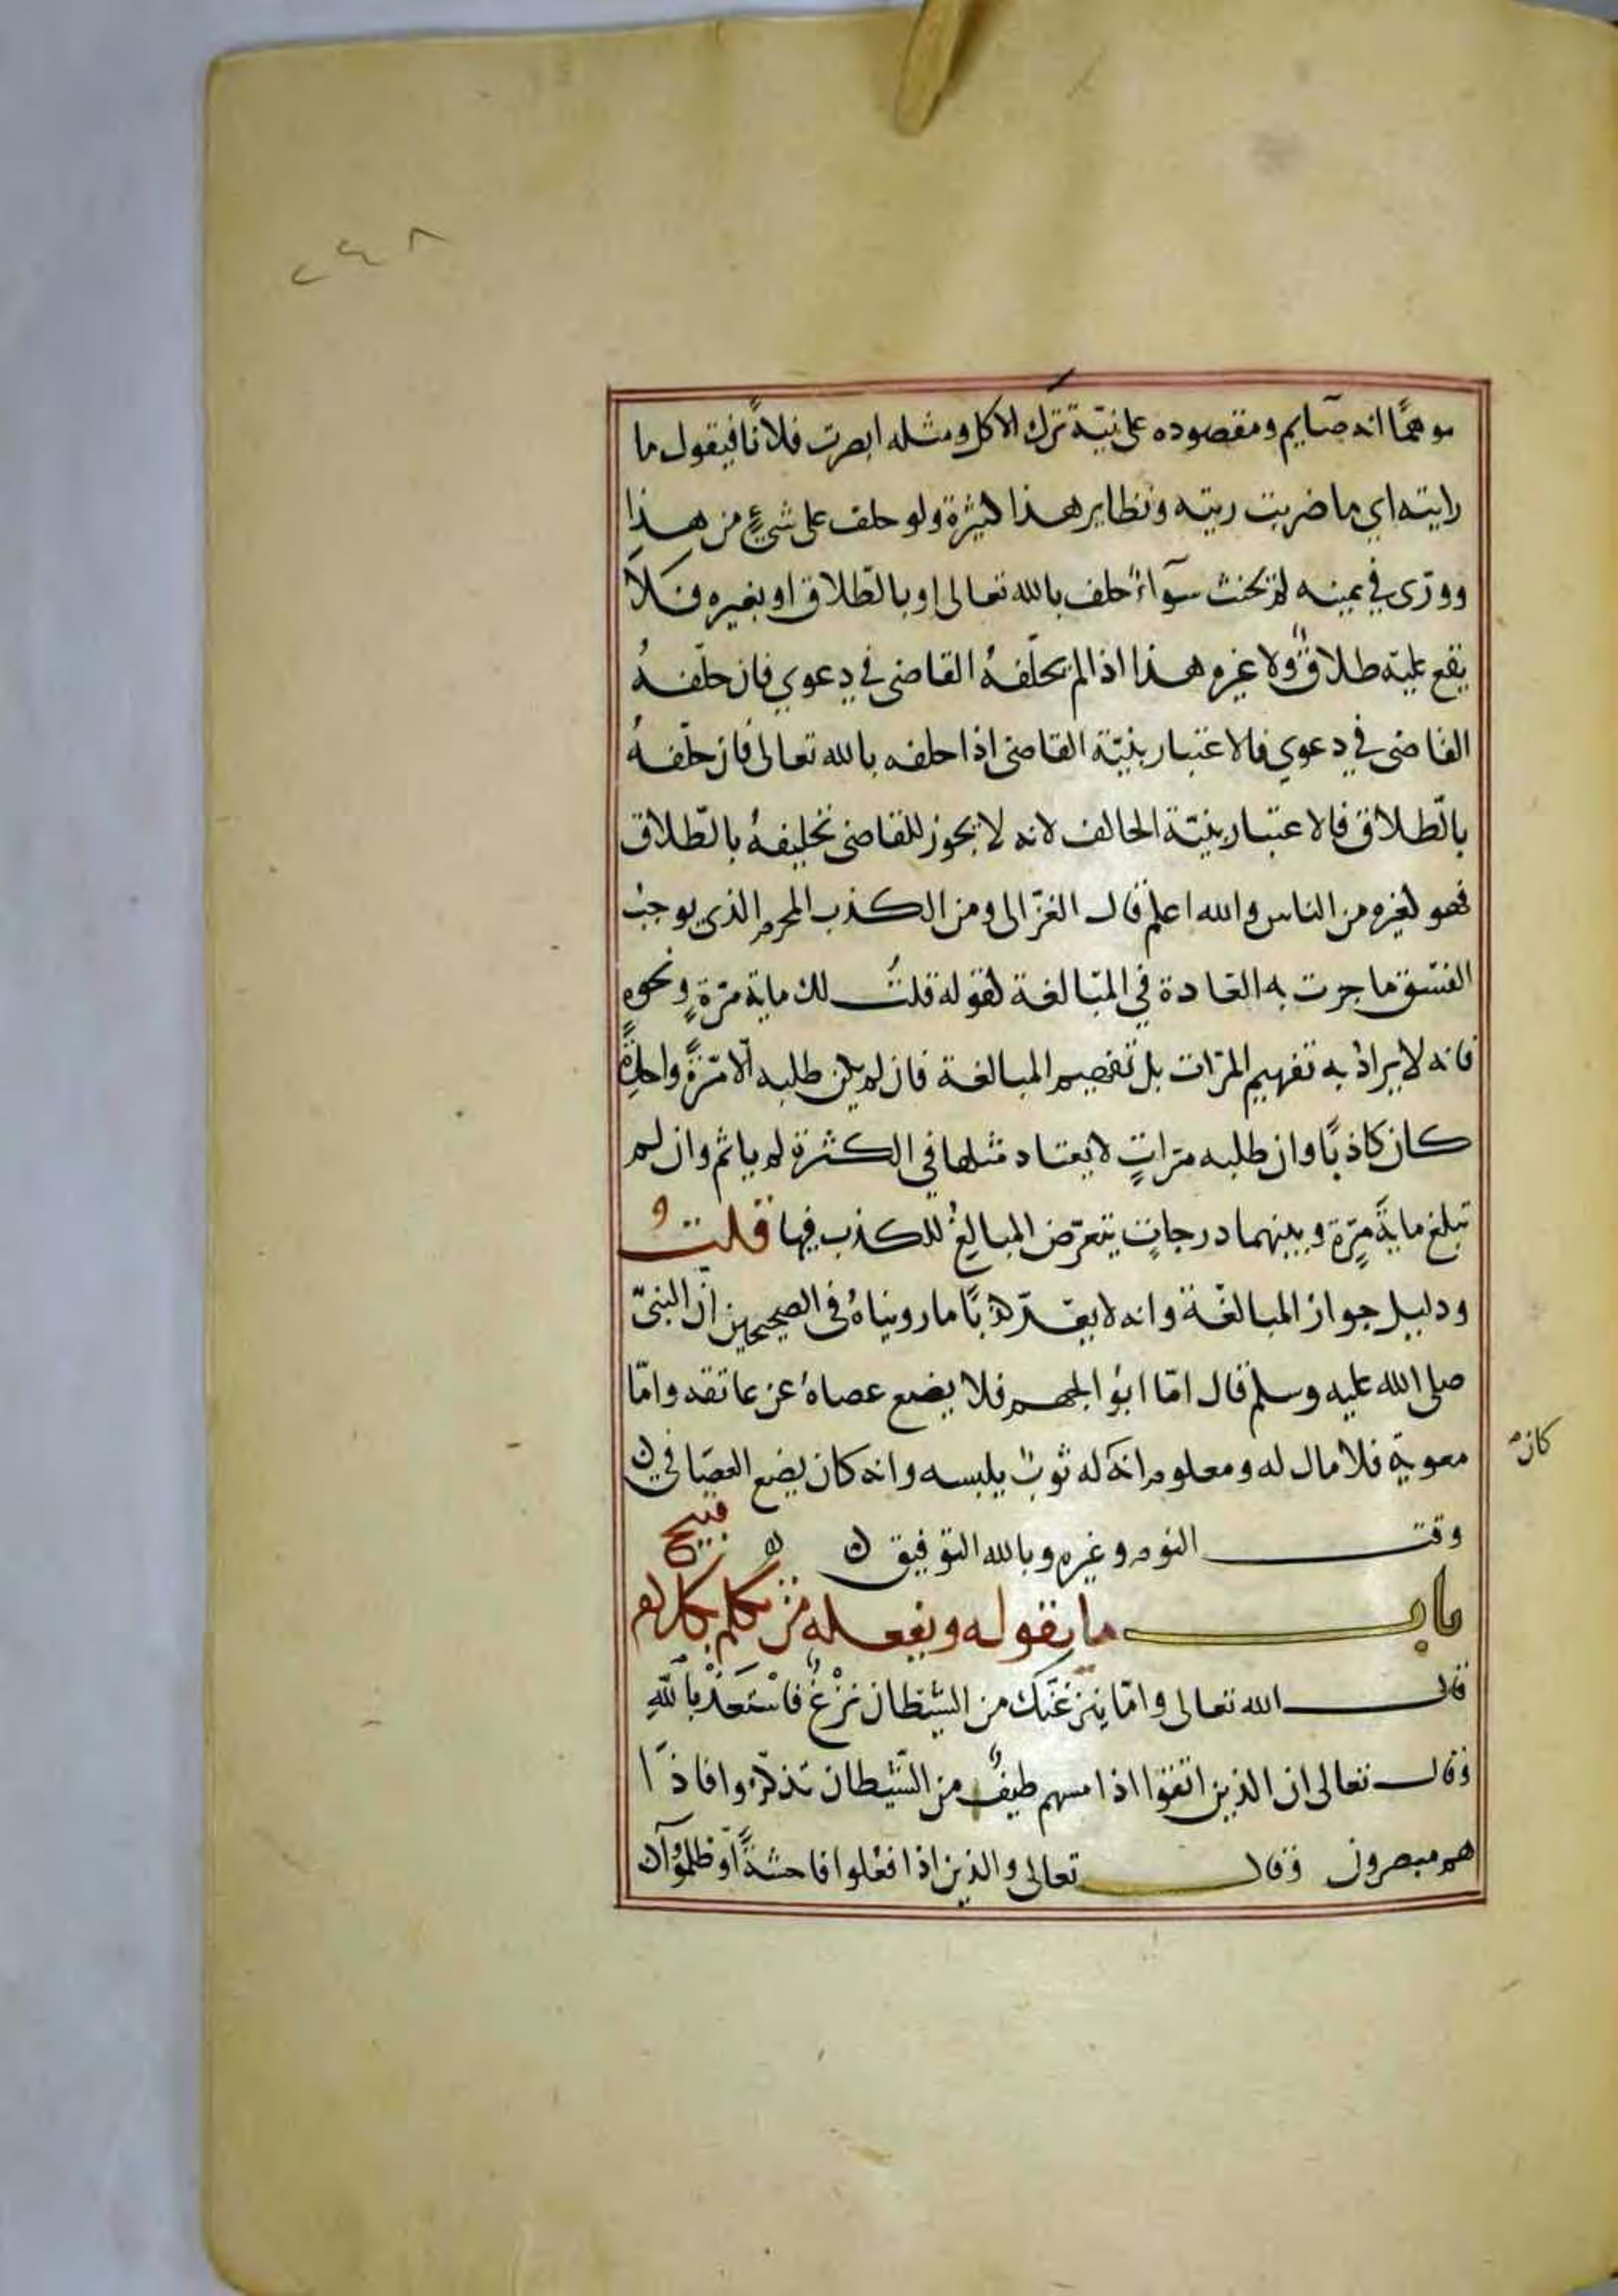 ٢٤٨
موهمًا انه صَايم ومقصوده على نيّة ترك الاكل ومثله ابصرت فلانًا فيقول ما
رايته اي ما ضربت ريته ونظاير هذا كثيرة ولو حلف على شيءٍ من هذا
وورّى في يمينه لم يحنث سوآءٌ حلف بالله تعالى او بالطّلاق او بغيره فَلَا
يقع عليه طلاقٌ ولا غيره هذا اذا لم يحلّفهُ القاضى في دعوي فان حلّفهُ
القاضى في دعوي فالاعتبار بنيّة القاضى اذا حلفه بالله تعالى فان حلّفهُ
بالطّلاق فالاعتبار بنيّة الحالف لانه لا يجوز للقاضى تحليفهُ بالطّلاق
فهو كغيره من الناس والله اعلم قال الغزّالى ومن الكذب المحرم الذي يوجبُ
الفسْق ما جرت به العَادة في المبَالغة كقوله قلتُ لك ماية مرّةٍ ونحوه
فانه لا يرادُ به تفهيم المرّات بل تفهيم المبالغة فان لم يكن طلبه الّا مرّةً واحدةً
كان كاذبًا وان طلبه مرّاتٍ لا يعتاد مثلها في الكثرة لم ياثم وان لم
تبلغ مايةَ مرّة وبينهما درجات يتعرّض المبالغُ للكذب فيها قلتُ
ودليل جواز المبالغة وانه لا يعدّ كذبًا ما رويناهُ فى الصحيحين ان النبىّ
صلى الله عليه وسلم قال امّا ابو الجهم فلا يضع عصاهُ عن عاتقه وامّا
معوية فلا مال له ومعلوم انه له ثوبٌ يلبسه وانه كان يضع العصَا في
كان
وقت النوم وغيره وبالله التوفيق
باب ما يقوله ويفعله من تكلم بكلام قبيح
قال الله تعالى وامّا ينزغنّك من الشيطان نزْغٌ فاسْتعذْ باللّهِ
وقال تعالى ان الذين اتقوا اذا مسهم طيفٌ من الشّيطان تذكّروا فاذَا
هم مبصرون وقال تعالى والذين اذا فعلوا فاحشةً او ظلموآ ان